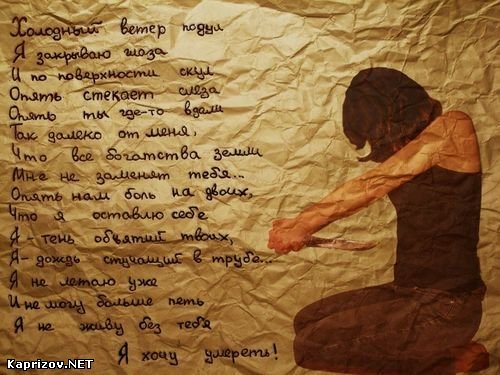 Холодный ветер подул
Я закрываю глаза
И по поверхности скул
Опять стекает слеза
Опять ты где-то вдали
Так далеко от меня,
Что все богатства земли
Мне не заменят тебя...
Опять нам боль на двоих,
Что я оставлю себе
Я - тень объятий твоих,
Я - дождь стучащий в трубе...
Я не летаю уже
И не могу больше петь
Я не живу без тебя
Я хочу умереть!
Kaprizov.NET